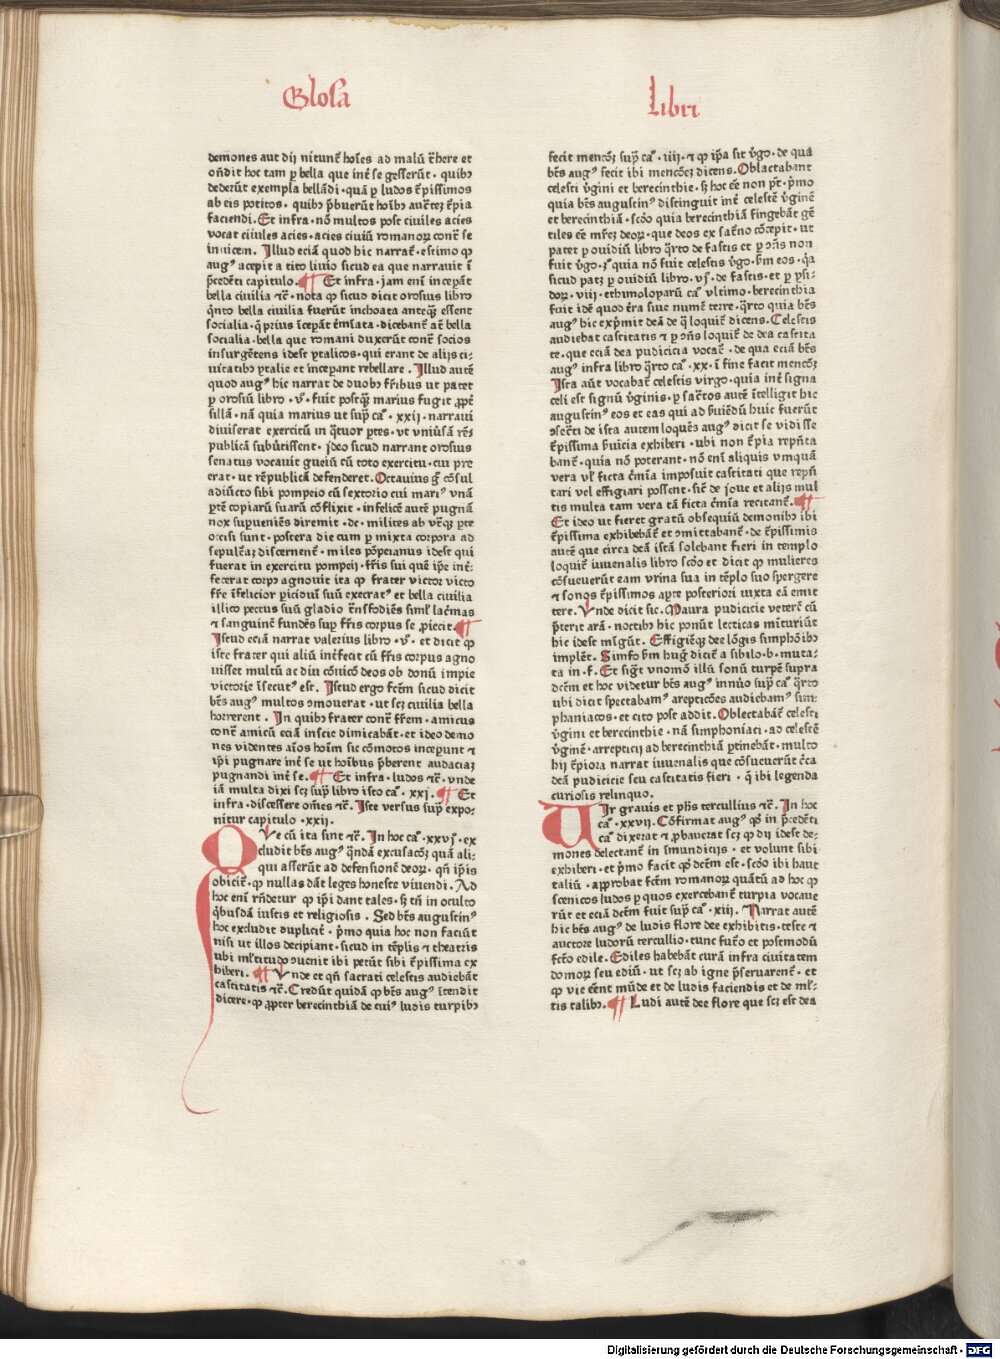 Glosa
Libri
demones aut dij nitunt̃ hoĩes ad malũ t̃here et
oñdit hoc tam ꝑ bella que int̃ se gesserũt · quibꝫ
dederũt exempla bellãdi · quã ꝑ ludos t̃pissimos
ab eis petitos · quibꝫ p̃buerũt hoĩbꝫ auct̃eꝫ t̃pia
faciendi. Et infra · nõ multos post ciuiles acies
vocat ciuiles acies · acies ciuiũ romanoꝝ cont̃ se
inuicem. Illud eciã quod hic narrat̃ · estimo ꝙ
augꝰ acepit a tito liuio sicud ea que narrauit ĩ
p̃cedẽti capitulo. ¶ Et infra · jam enĩ incepãt
bella ciuilia ⁊c̃ · nota ꝙ sicud dicit orosius libro
q̃nto bella ciuilia fuerũt inchoata anteq̃ꝫ essent
socialia · q̃ prius ĩcepãt t̃misata · dicebant̃ at̃ bella
socialia · bella que romani duxerũt cont̃ socios
insurgẽtens idest ytalicos · qui erant de alijs ci⸗
uitatibꝫ ytalie et inceperant rebellare. Illud autẽ
quod augꝰ hic narrat de duobꝫ fr̃ibus ut patet
ꝑ orosiũ libro · v̊ · fuit postq̃ꝫ marius fugit ꝓpt̃
sillã · nã quia marius ut sup̃ ca̾ · xxij · narraui
diuiserat exercitũ in q̃tuor ꝑtes · vt vniũsã rẽꝫ
publicã subũtissent · jdeo sicud narrant orosius
senatus vocauit gneiũ cũ toto exercitu · cui pre
erat · ut rẽpublicã defenderet. Octauius g̃ cõsul
adiũcto sibi pompeio cũ sextorio cui mariꝰ vnã
ꝑtẽ copiarũ suarũ cõflixit · infelicẽ autẽ pugnã
nox supueniẽs diremit · dc · milites ab vt̃qꝫ ꝑte
occisi sunt · postera die cum ꝑ mixta corpora ad
sepult̃aꝫ discernent̃ · miles põpeianus idest qui
fuerat in exercitu pompeij · fr̃is sui quẽ ip̃e int̃⸗
fecerat corpꝫ agnouit ita ꝙ frater victor victo
fr̃e ĩfelicior ꝑicidiũ suũ execratꝰ et bella ciuilia
illico pectus suũ gladio t̃nsfodiẽs siml̃ lac̃mas
⁊ sanguinẽ fundẽs sup̃ fr̃is corpus se ꝓiecit. ¶
Istud eciã narrat valerius libro · v̊ · et dicit ꝙ
iste frater qui aliũ int̃fecit cũ fr̃is corpus agno
uisset multũ ac diu cõuicõ deos ob donũ impie
victorie ĩsecutꝰ est. Istud ergo fct̃m sicud dicit
bẽs augꝰ multos ꝯmouerat · ut scꝫ ciuilia bella
horrerent. In quibꝫ frater cont̃ fr̃em · amicus
cont̃ amicũ eciã inscie dimicabãt · et ideo demo
nes videntes aĩos hoĩm sic cõmotos inceperunt ⁊
ip̃i pugnare int̃ se ut hoĩbus p̃berent audaciaꝫ
pugnandi int̃ se. ¶ Et infra · ludos ⁊c̃ · vnde
iã multa dixi scꝫ sup̃ libro isto ca̾ · xxj. ¶ Et
infra · discessere om̃es ⁊c̃. Iste versus sup̃ expo⸗
nitur capitulo · xxij.
Que cũ ita sint ⁊c̃. In hoc ca̾ · xxvj · ex
cludit bẽs augꝰ q̃ndã excusacõꝫ quã ali⸗
qui asserũt ad defensionẽ deoꝝ · qñ ip̃is
obicit̃ · ꝙ nullas dãt leges honeste viuendi. Ad
hoc enĩ rñdetur ꝙ ip̃i dant tales · sꝫ tñ in oculto
q̃busdã iustis et religiosis. Sed bẽs augustinꝰ
hoc excludit duplicit̃ · p̃mo quia hoc non faciũt
nisi ut illos decipiant · sicud in tẽplis ⁊ theatris
ubi ml̃titudo ꝯuenit ibi petũt sibi t̃pissima ex
hiberi. ¶ Vnde et qñ sacrati celestis audiebãt
castitatis ⁊c̃. Credũt quidã ꝙ bẽs augꝰ ĩtendit
dicere · ꝙ ꝓpter berecinthiã de cuiꝰ ludis turpibꝫ
fecit mencõꝫ sup̃ ca̾ · iiij · ⁊ ꝙ ip̃a sit v̾go · de qua
bẽs augꝰ fecit ibi mencõꝫ dicens. Oblactabant
celesti v̾gini et berecinthie · sꝫ hoc ẽe non pt̃ · p̃mo
quia bẽs augustinꝰ distinguit int̃ celestẽ v̾ginẽ
et berecinthiã · scd̾o quia berecinthiã fingebãt gẽ
tiles ẽe mr̃eꝫ deoꝝ · que deos ex sat̾no cõcepit · ut
patet ꝑ ouidiũ libro q̃rto de fastis et ꝑ ꝯñs non
fuit v̾go · ꝫ̃ quia nõ fuit celestis v̾go · p̃m eos · q̃a
sicud patꝫ ꝑ ouidiũ libro · vj̊ · de fastis · et ꝑ ysi⸗
doꝝ · viij · ethimoloyarũ ca̾ vltimo · berecinthia
fuit idẽ quod t̃ra siue numẽ terre · q̃rto quia bẽs
augꝰ hic exp̃mit deã de q̃ loquit̃ dicens. Celestis
audiebat castitatis ⁊ ꝑ ꝯñs loquit̃ de dea castita
te · que eciã dea pudicicia vocat̃ · de qua eciã bẽs
augꝰ infra libro q̃rto ca̾ · xx · ĩ fine facit mencõꝫ
Ista aũt vocabat̃ celestis virgo · quia int̃ signa
celi est signũ v̾ginis · ꝑ sac̃tos autẽ ĩtelligit hic
augustinꝰ eos et eas qui ad s̾uiẽdũ huic fuerũt
ꝯsec̃ti de ista autem loquẽs augꝰ dicit se vidisse
t̃pissima s̾uicia exhiberi · ubi non t̃pia rep̃nta
bant̃ · quia nõ poterant · nõ enĩ aliquis vmquã
vera vl̃ ficta c̾mĩa imposuit castitati que rep̃ñ
tari vel effigiari possent · sic̃ de joue et alijs mul
tis multa tam vera tã ficta c̾mĩa recitant̃. ¶
Et ideo ut fieret gratũ obsequiũ demonibꝫ ibi
t̃pissima exhibebãt̃ et ꝯmittabant̃ · de t̃pissimis
autẽ que circa deã istã solebant fieri in templo
loquit̃ iuuenalis libro scd̾o et dicit ꝙ mulieres
cõsueuerũt eam vrina sua in tẽplo suo spergere
⁊ sonos t̃pissimos aꝑte posteriori iuxta eã emit
tere. Vnde dicit sic. Maura pudicicie veterẽ cũ
p̃terit arã · noctibꝫ hic ponũt lecticas micturiũt
hic idest mĩgũt. Effigiẽqꝫ dee lõgis simphõibꝫ
implẽt. Simfo p̃m hug̾ dicit̃ a sibilo · b · muta⸗
ta in · f. Et sig̾t vnomõ illũ sonũ turpẽ supra
dc̃m et hoc videtur bẽs augꝰ innũo sup̃ ca̾ q̃rto
ubi dicit spectabamꝰ arepticões audiebamꝰ sim⸗
phaniacos · et cito post addit. Oblectabãt̃ celesti
v̾gini et berecinthie · nã simphoniaci · ad celestẽ
v̾ginẽ · arrepticij ad berecinthiã ꝑtinebãt · multo
hĩj t̃piora narrat iuuenalis que cõsueuerũt c̾ca
deã pudicicie seu castitatis fieri · q̃ ibi legenda
curiosis relinquo.
Vir grauis et ph̃s tercullius ⁊c̃. In hoc
ca̾ · xxvij. Cõfirmat augꝰ qd̾ in p̃cedẽti
ca̾ dixerat ⁊ ꝓbauerat scꝫ ꝙ dij idest de⸗
mones delectant̃ in ĩmundicijs · et volunt sibi
exhiberi · et p̃mo facit qd̾ dc̃m est · scd̾o ibi haut
taliũ · approbat fct̃m romanoꝝ quãtũ ad hoc ꝙ
scenicos ludos ꝑ quos exercebant̃ turpia vocaue
rũt et eciã dc̃em fuit sup̃ ca̾ · xiij. Narrat autẽ
hic bẽs augꝰ de ludis flore dee exhibitis · teste ⁊
auctore ludorũ tercullio · tunc fut̾o et postmodũ
fct̾o edile. Ediles habebãt curã infra ciuitatem
domoꝝ seu ediũ · ut scꝫ ab igne p̃seruarent̃ · et
ꝙ vie ẽent mũde et de ludis faciendis et de ml̃⸗
tis talibꝫ. ¶ Ludi autẽ dee flore que scꝫ est dea
Digitalisierung gefördert durch die Deutsche Forschungsgemeinschaft - DFG